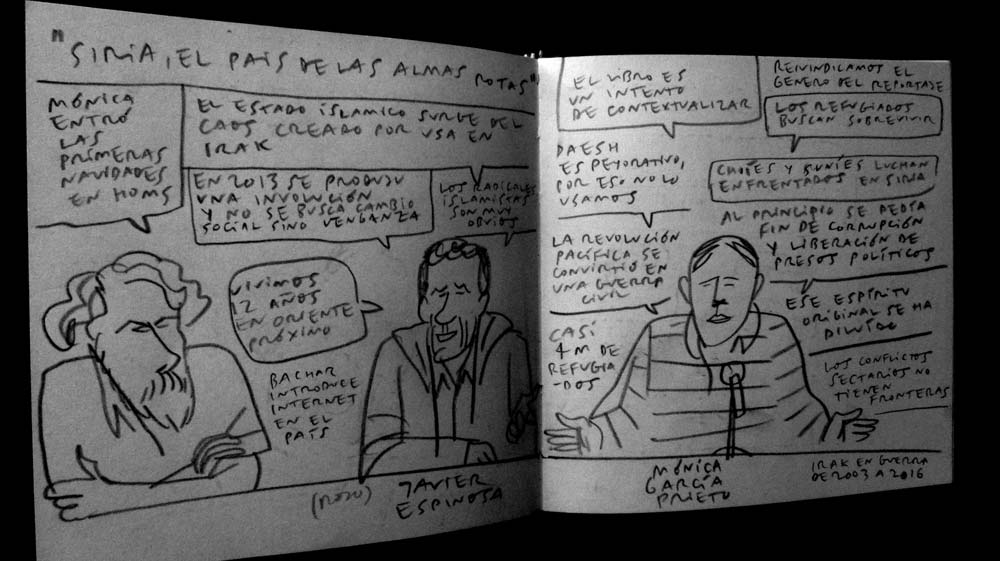 "SIRIA, EL PAIS DE LAS ALMAS ROTAS"
MÓNICA
ENTRÓ
LAS
PRIMERAS
NAVIDADES
EN HOMS
EL ESTADO ISLAMICO SURGE DEL
CAOS CREADO POR USA EN
IRAK
EN 2013 SE PRODUJO
UNA INVOLUCIÓN
Y NO SE BUSCA CAMBIO
SOCIAL SINO VENGANZA
LOS RADICALES
ISLAMISTAS
SON MUY
OBVIOS
VIVIMOS
12 AÑOS
EN ORIENTE
PRÓXIMO
BACHAR
INTRODUCE
INTERNET
EN EL
PAÍS
JAVIER
ESPINOSA
EL LIBRO ES
UN INTENTO
DE CONTEXTUALIZAR
REIVINDICAMOS EL
GENERO DEL REPORTAJE
LOS REFUGIADOS
BUSCAN SOBREVIVIR
DAESH
ES PEYORATIVO,
POR ESO NO LO
USAMOS
CHIÍES Y SUNÍES LUCHAN
ENFRENTADOS EN SIRIA
AL PRINCIPIO SE PEDÍA
FIN DE CORRUPCIÓN
Y LIBERACIÓN DE
PRESOS POLÍTICOS
LA REVOLUCIÓN
PACÍFICA SE
CONVIRTIÓ EN
UNA GUERRA
CIVIL
ESE ESPÍRITU
ORIGINAL SE HA
DILUÍDO
CASI
4 M DE
REFUGIA
-DOS
LOS CONFLICTOS
SECTARIOS NO
TIENEN
FRONTERAS
MÓNICA
GARCÍA
PRIETO
IRAK EN GUERRA
DE 2003 A 2016